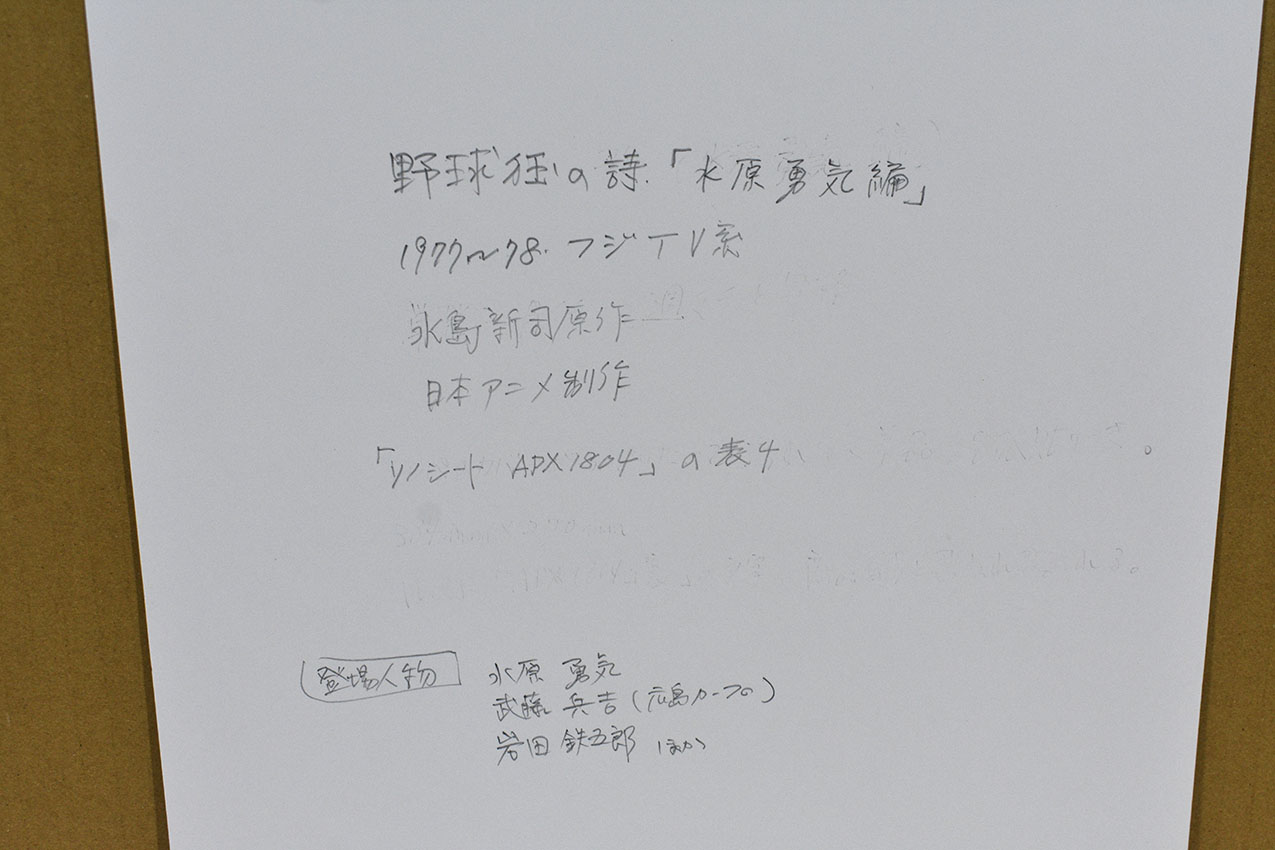 野球狂の詩「水原勇気編」
1977〜78. フジTV系
水島新司原作
日本アニメ制作
「ソノシート APX1804」の表4
登場人物 水原 勇気
武藤 兵吉(広島カープの)
岩田 鉄五郎 ほか